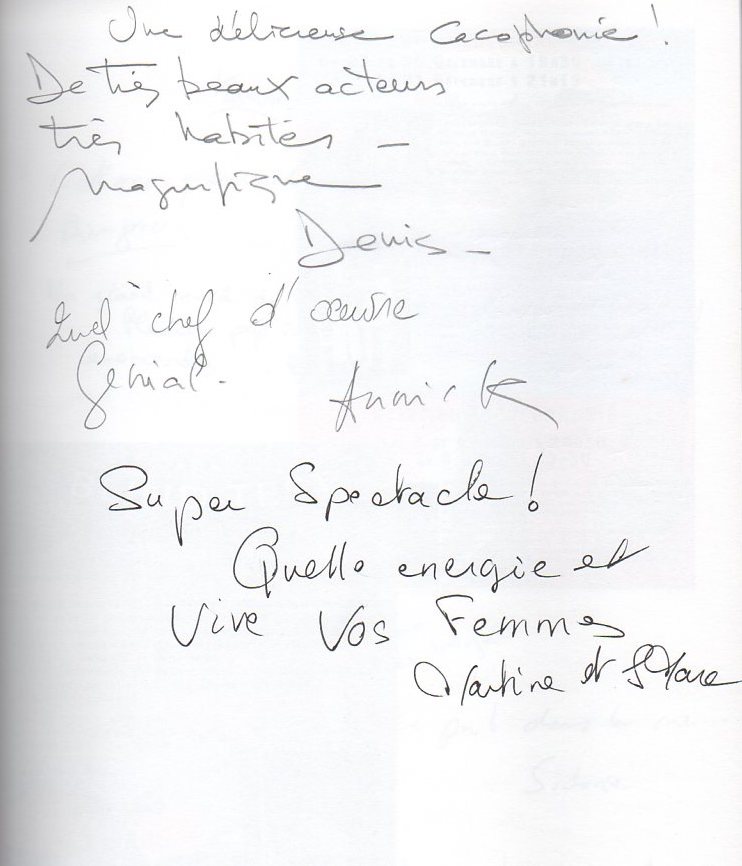 Une délicieuse Cacophonie !
De très beaux acteurs
très habités -
Magnifique
Denis -
Quel chef d'œuvre
Génial.
Annick
Super Spectacle !
Quelle energie et
Vive Vos Femmes
Martine et